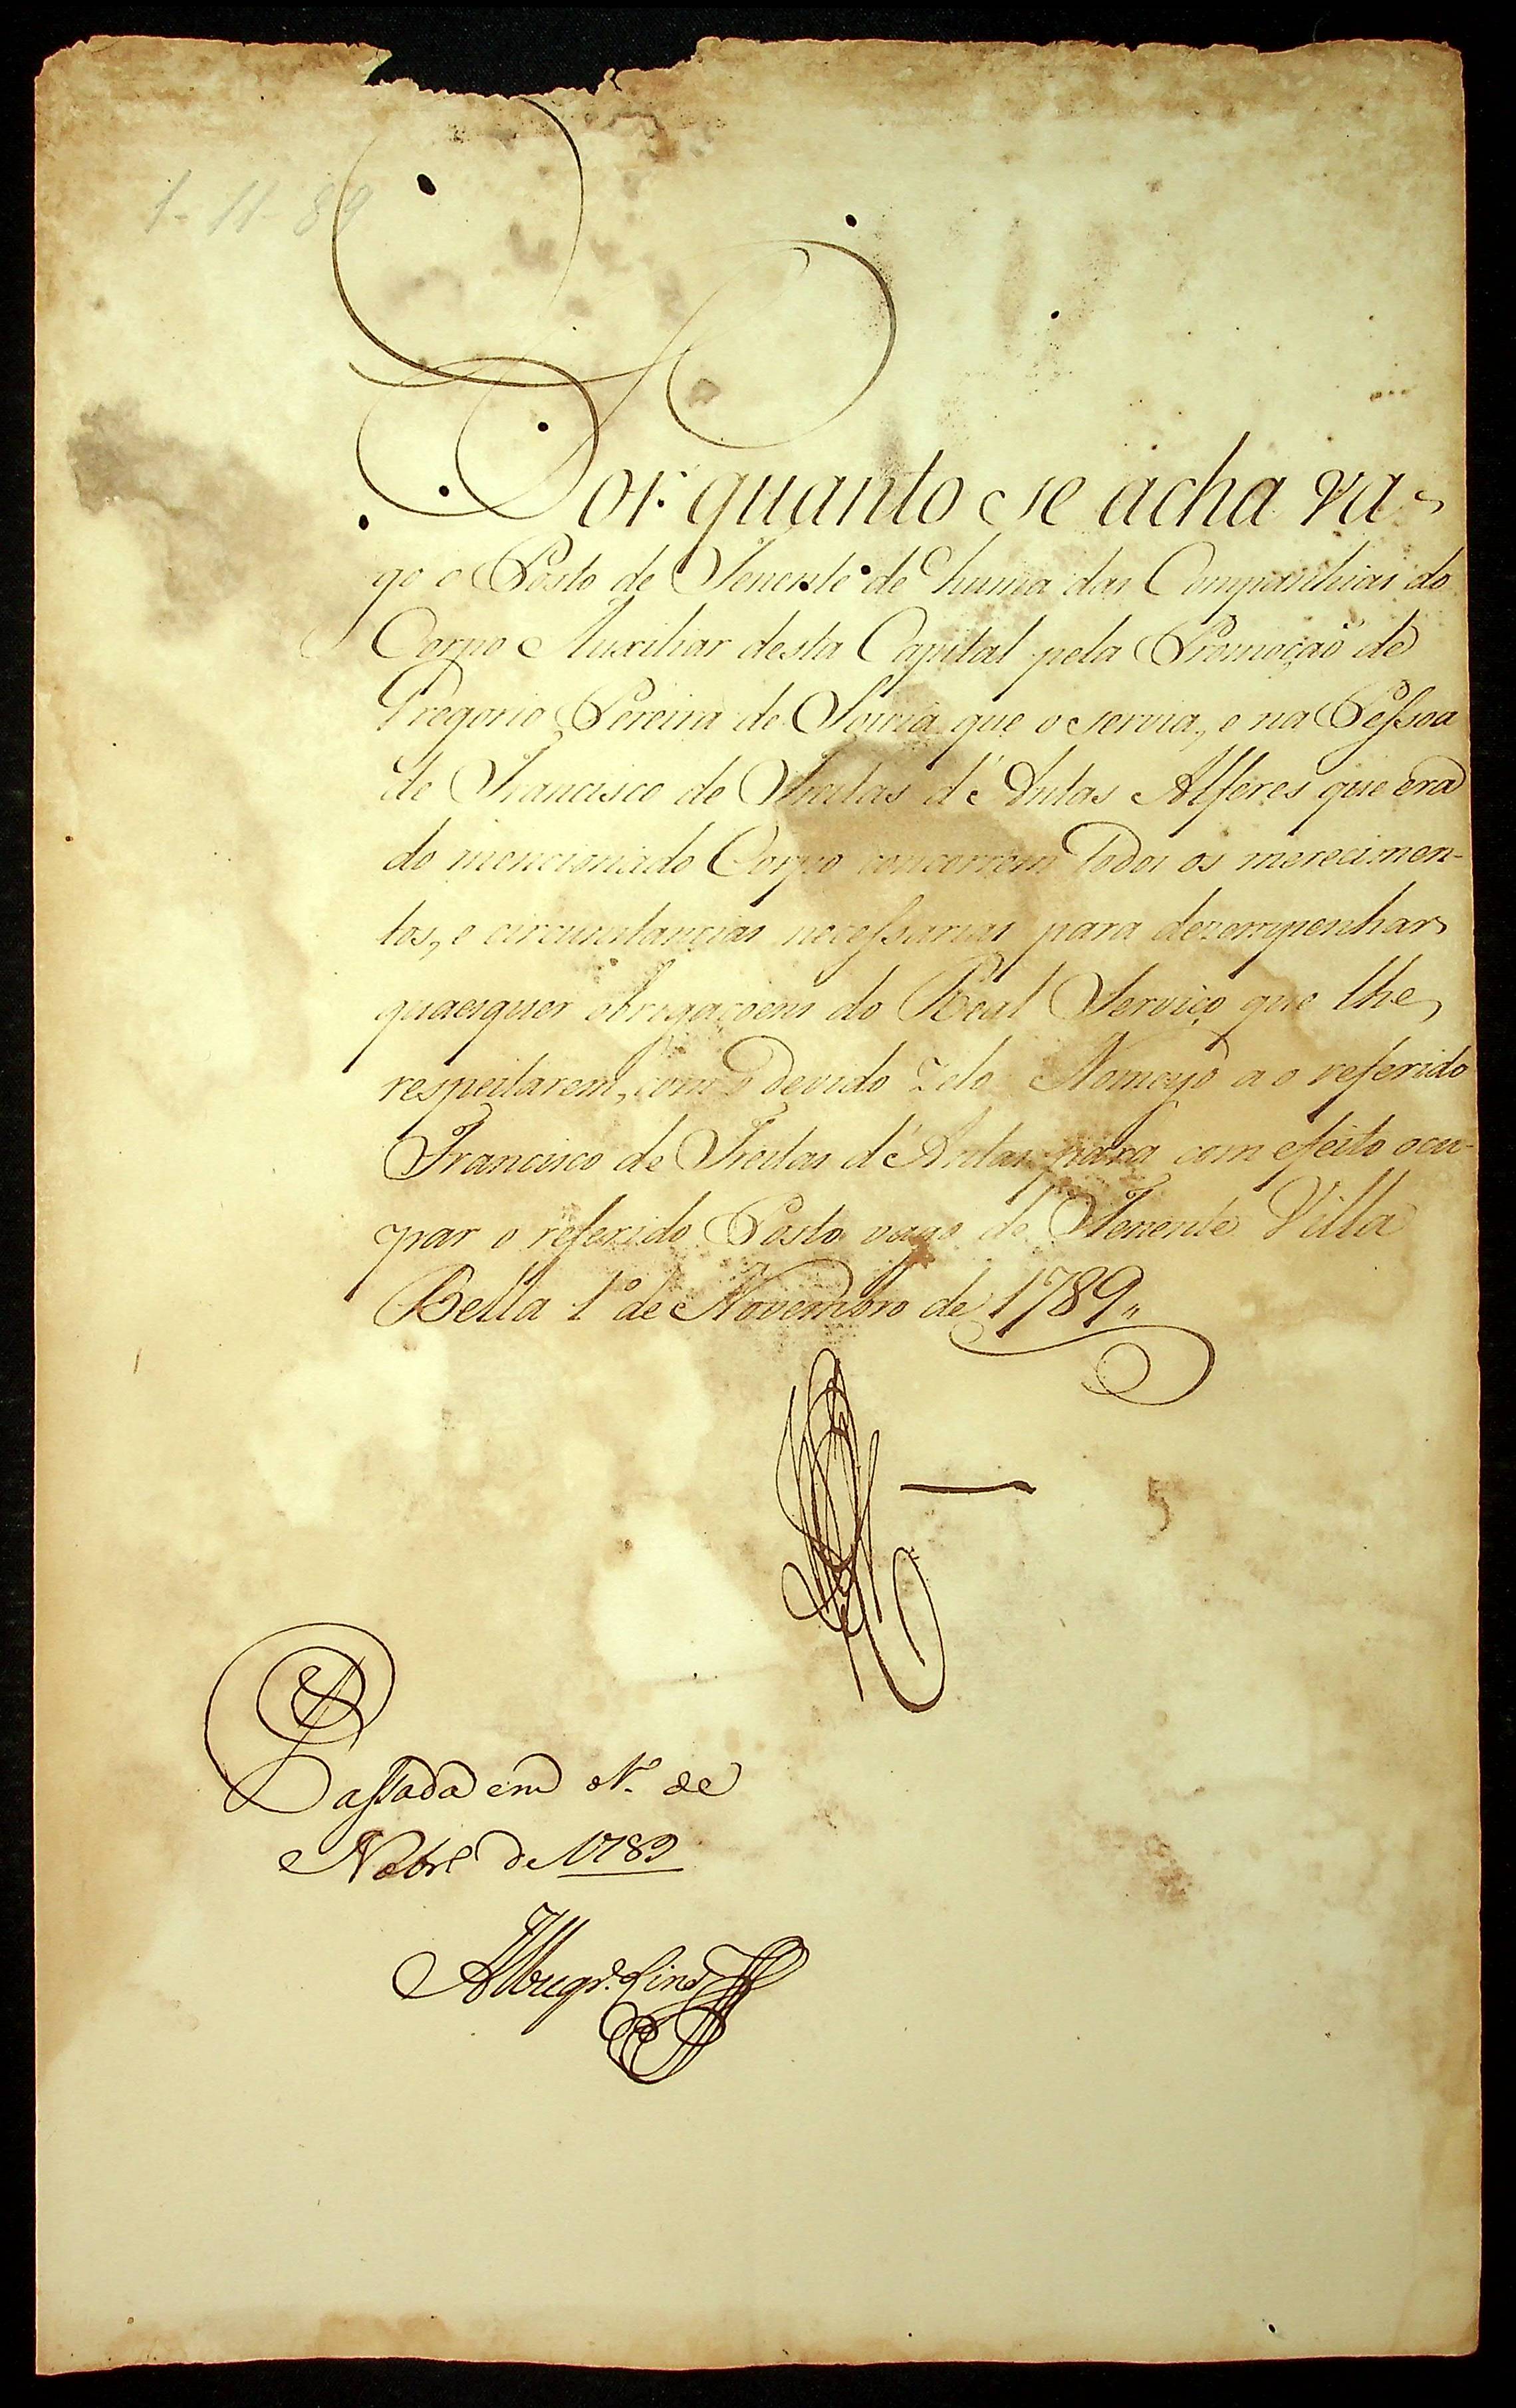 1-11-89
Por quanto se acha va-
go o Posto de Tenente de huma das Companhias do
Corpo Auxiliar desta Capital pela Promoçaõ de
Gregorio Pereira de Souza que o servia, e na Pessoa
de Francisco de Freitas d'Antas Alferes que era
do mencionado Corpo concorrem todos os merecimen-
tos, e circunstancias necessarias para dezempenhar
quaesquer obrigaçoens do Real Serviço que lhe
respeitarem, com o devido zelo Nomeyo a o referido
Francisco de Freitas d'Antas para com efeito ocu-
par o referido Posto vago de Tenente Villa
Bella 1º de Novembro de 1789,,
5
Passada em de
Nobrº de 1789
Albuqr.e Lins